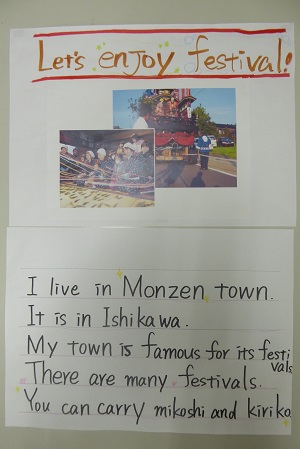 Let's enjoy festival!
I live in Monzen town.
It is in Ishikawa.
My town is famous for its festivals.
There are many festivals.
You can carry mikoshi and kiriko